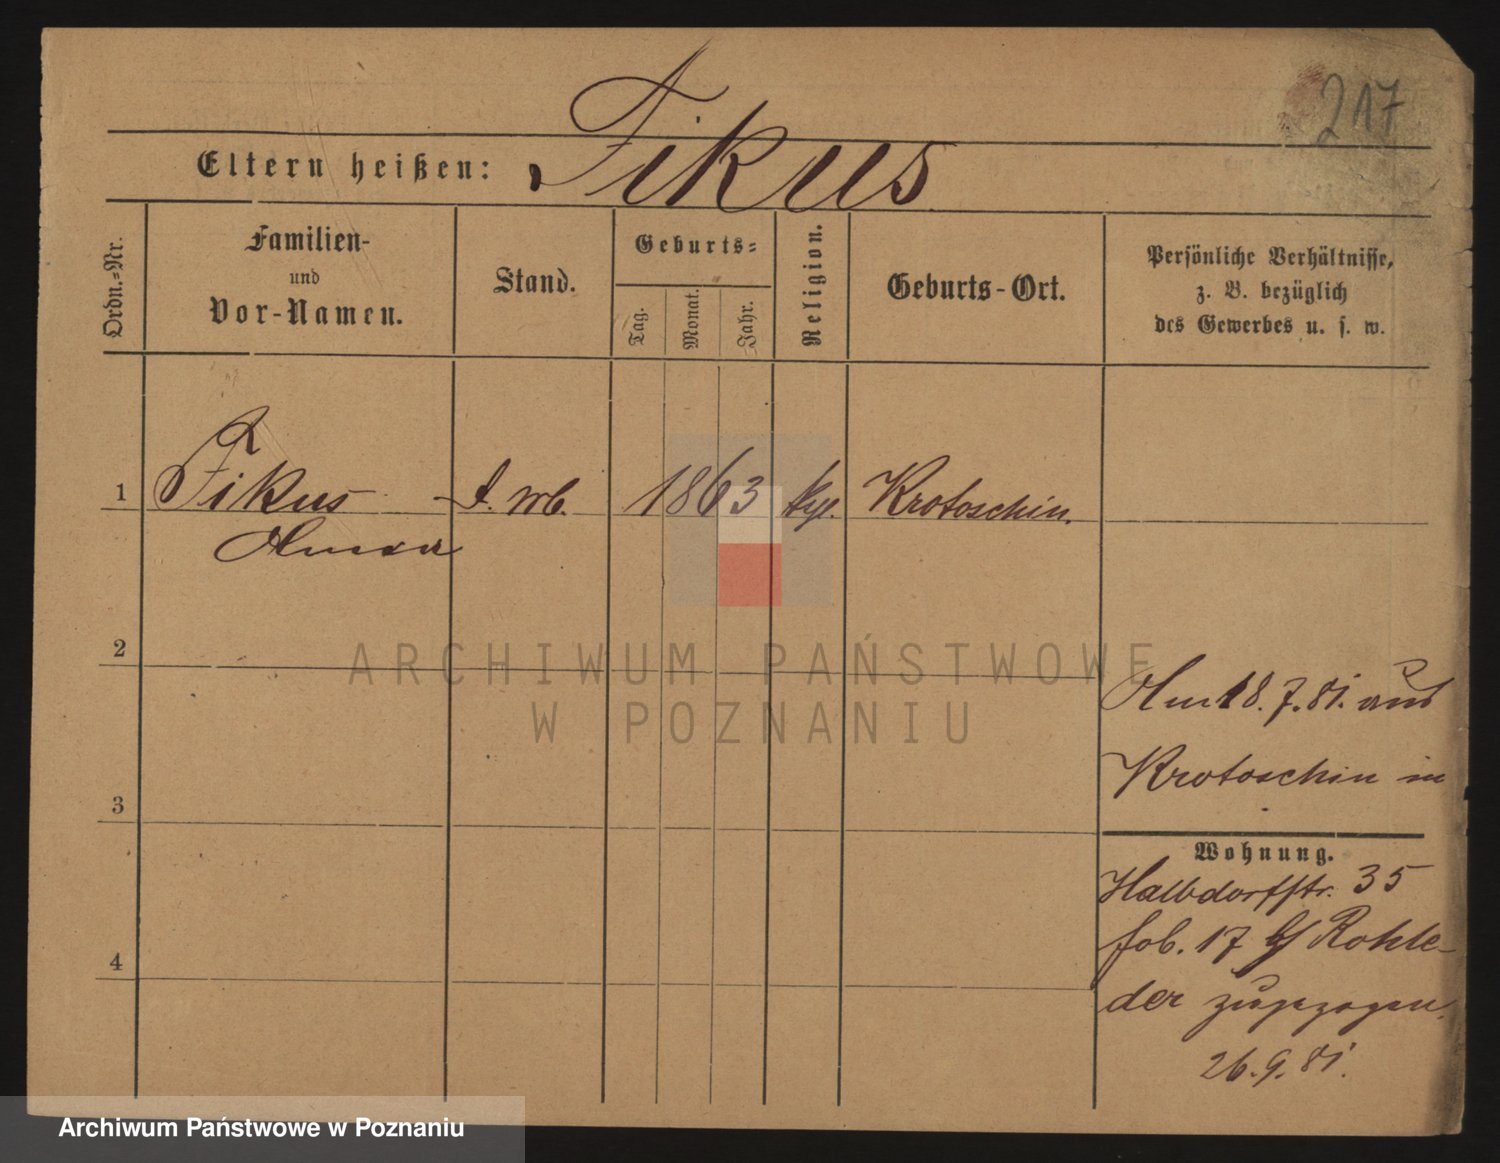 217
Eltern heißen: Fikus
Ordn.-Nr.
Familien-
und
Vor-Namen.
Stand.
Geburts-
Tag.
Monat.
Jahr.
Religion.
Geburts-Ort.
Persönliche Verhältnisse,
z. B. bezüglich
des Gewerbes u. s. w.
1 Fikus 1863 Krotoschin.
2
ARCHIWUM PAŃSTWOWE
W POZNANIU
18.7.81. aus
Krotoschin in
3
Wohnung.
Halbdorfstr. 35
17 Rohle-
4
der zugezogen.
26.9.81.
Archiwum Państwowe w Poznaniu